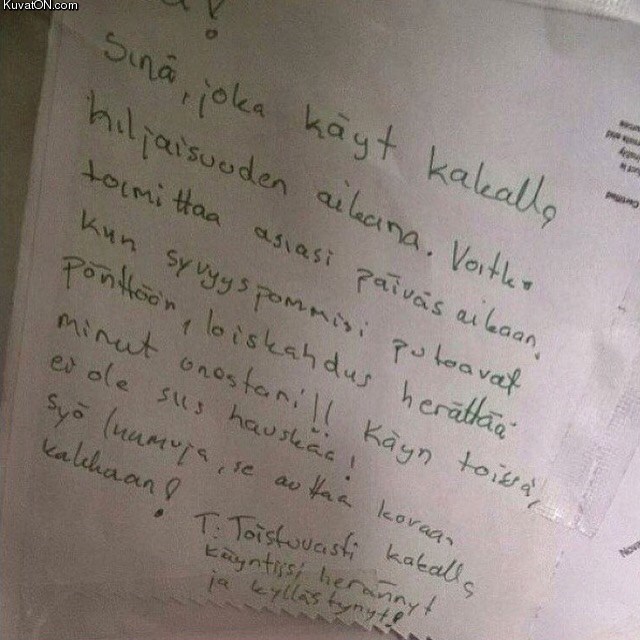 KuvatON.com
!
Sinä, joka käyt kakalla
hiljaisuuden aikana. Voitko
toimittaa asiasi päiväs aikaan,
kun syvyyspommisi putoavat
pönttöön, loiskahdus herättää
minut unestani!! Käyn töissä,
ei ole siis hauskaa!
syö luumuja, se auttaa kovaan
kakkaan!
T: Toistuvasti kakalla
käyntiisi herännyt
ja kyllästynyt!